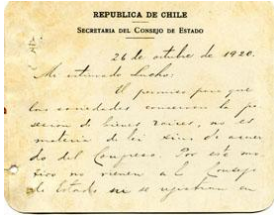 REPUBLICA DE CHILE
SECRETARIA DEL CONSEJO DE ESTADO
26 de octubre de 1920.
Mi estimado Lucho:
El permiso para que
las sociedades conserven la po
sesion de bienes raices, no es
materia de lei sino de acuer
do del Congreso. Por este mo
tivo no vienen al Consejo
de Estado ni se registran en